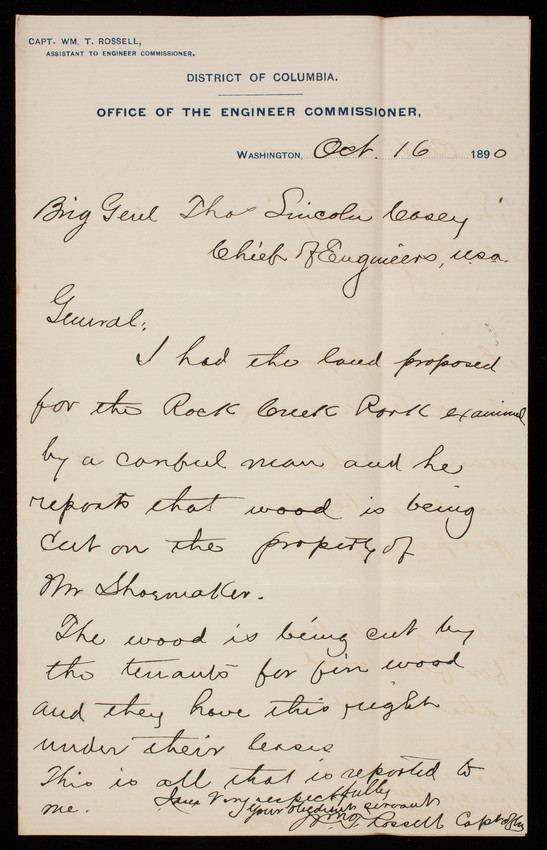 CAPT. WM. T. ROSSELL,
ASSISTANT TO ENGINEER COMMISSIONER.
DISTRICT OF COLUMBIA.
OFFICE OF THE ENGINEER COMMISSIONER,
WASHINGTON, Oct. 16 1890
Brig Genl Thos Lincoln Casey
Chief of Engineers, USA.
General,
I had the land proposed
for the Rock Creek Park examined
by a careful man and he
reports that wood is being
cut on the property of
Mr Shoemaker.
The wood is being cut by
the tenants for fire wood
and they have this right
under their leases
This is all that is reported to
me. I am Very respectfully
Your obedient servant
Wm T. Rossell Capt of Eng